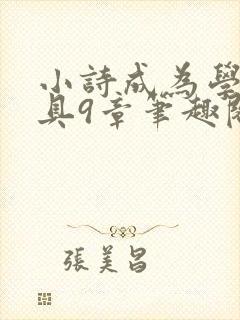 小詩成為學
具9章筆趣閱
張美昌